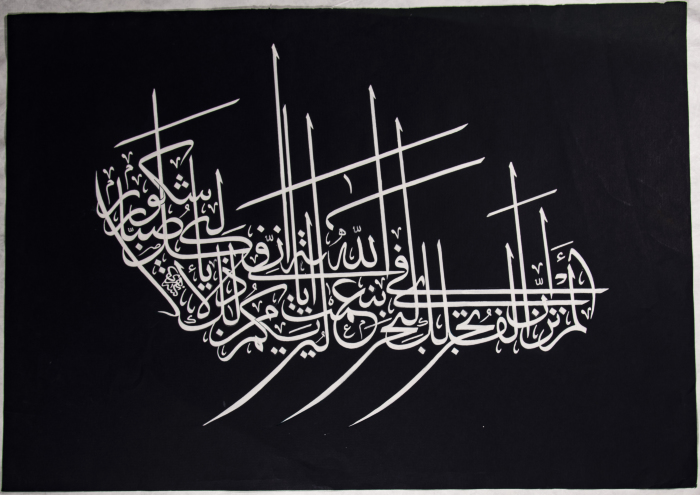 ألم تر أن الفلك تجري في البحر بنعمت الله ليريكم من آياته إن في ذلك لآيات لكل صبار شكور